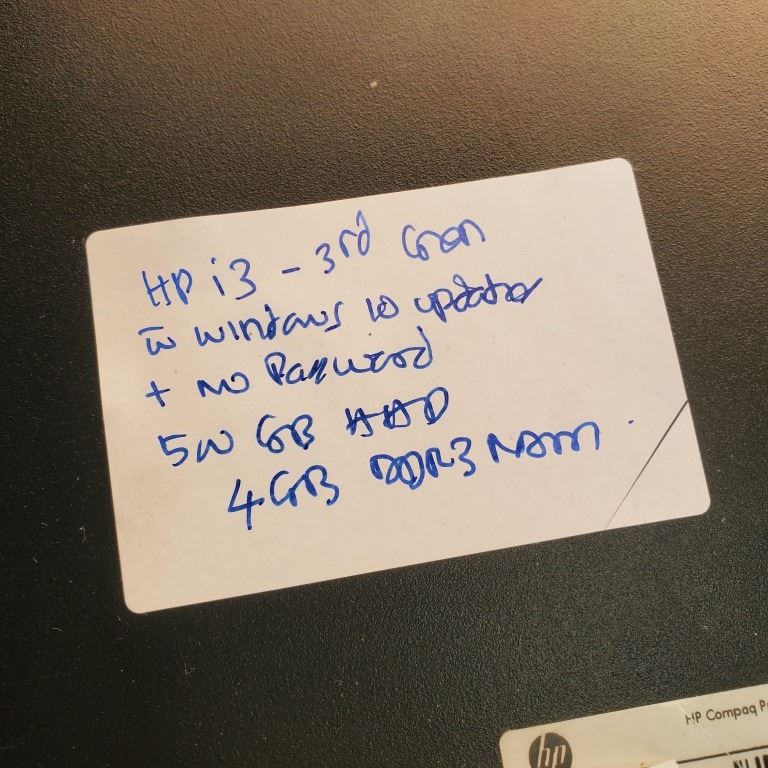 HP i3 - 3rd Gen
w̅ windows 10 updated
+ No Password
500 GB HDD
4GB DDR3 RAM.
hp
HP Compaq